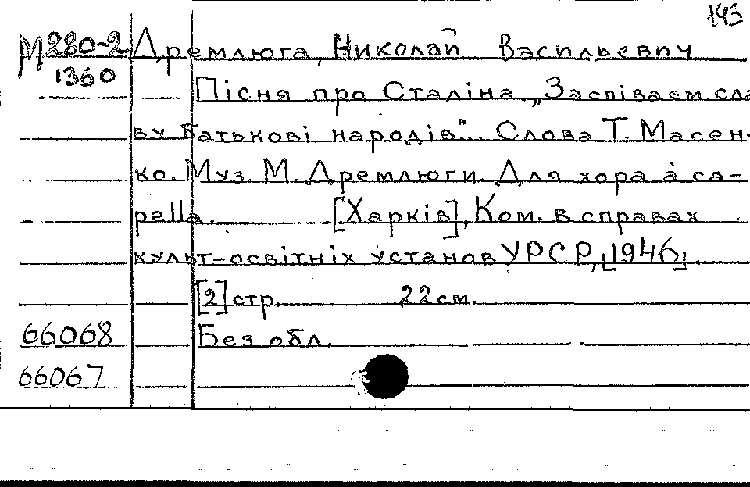 143
М 280-2 Дремлюга, Николай Васильевич
1360
Пісня про Сталіна „Заспіваєм сла-
ву батькові народів". Слова Т. Масен-
ко. Муз. М. Дремлюги. Для хора а ca-
pella. [Харків], Ком. в справах
культ-освітніх установ УРСР, [1946].
[2] стр. 22 см.
66068 Без обл.
66067